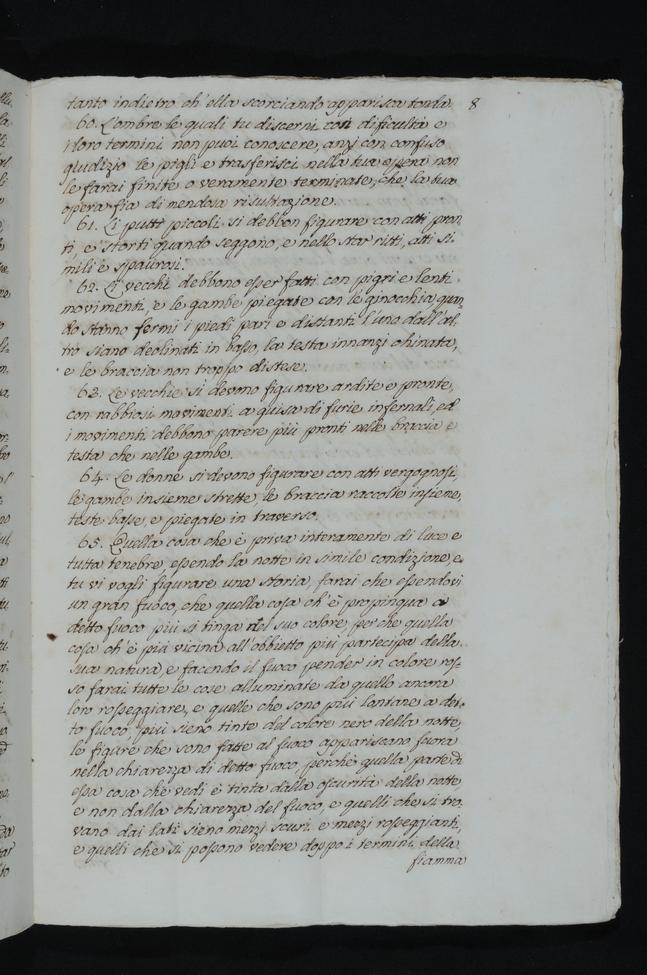 tanto indietro ch'ella scorciando apparisca tonda. 8
60. L'ombre le quali tu discerni con dificultà e
i loro termini non puoi conoscere, anzi con confuso
giudizio le pigli e trasferisci nella tua opera non
le farai finite o veramente terminate, che la tua
opera fia di mendosa risultazione.
61. Li putti piccoli si debbon figurare con atti pron
ti e storti quando seggono, e nello star ritti, atti si
mili e spaurosi.
62. Li vecchi debbono esser fatti con pigri e lenti
movimenti, e le gambe piegate con le ginocchia quan
do stanno fermi i piedi pari e distanti l'uno dall'al
tro siano declinati in basso, la testa innanzi chinata,
e le braccia non troppo distese.
63. Le vecchie si devono figurare ardite e pronte,
con rabbiosi movimenti a guisa di furie infernali, ed
i movimenti debbono parere più pronti nelle braccia e
testa che nelle gambe.
64. Le donne si devono figurare con atti vergognosi,
le gambe insieme strette le braccia raccolte insieme,
teste basse, e piegate in traverso.
65. Quella cosa che è priva interamente di luce e
tutta tenebre, essendo la notte in simile condizione, e
tu vi vogli figurare una storia, farai che essendovi
un gran fuoco, che quella cosa ch'è propinqua a
detto fuoco più si tinga nel suo colore perche quella
cosa ch'è più vicina all'obbietto più partecipa della
sua natura, e facendo il fuoco pender in colore ros-
so farai tutte le cose alluminate da quello ancora
loro rosseggiare, e quelle che sono più lontane a det-
to fuoco più sieno tinte del colore nero della notte,
le figure che sono fatte al fuoco appariscano scura
nella chiarezza di detto fuoco, perchè quella parte di
essa cosa che vedi è tinta dalla oscurità della notte,
e non dalla chiarezza del fuoco, e quelli che si tro
vano dai lati sieno mezzi scuri e mezzi rosseggianti,
e quelli che si possono vedere doppo i termini della
fiamma